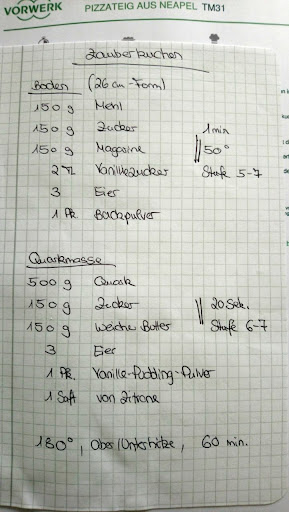 VORWERK PIZZATEIG AUS NEAPEL TM31
Zauberkuchen
Boden (26 cm-Form)
150 g Mehl
150 g Zucker 1 min
150 g Magarine 50°
2 TL Vanillezucker Stufe 5-7
3 Eier
1 Pk. Backpulver
Quarkmasse
500 g Quark
150 g Zucker 20 Sek.
150 g weiche Butter Stufe 6-7
3 Eier
1 Pk. Vanille-Pudding-Pulver
1 Saft von Zitrone
180°, Ober/Unterhitze, 60 min.